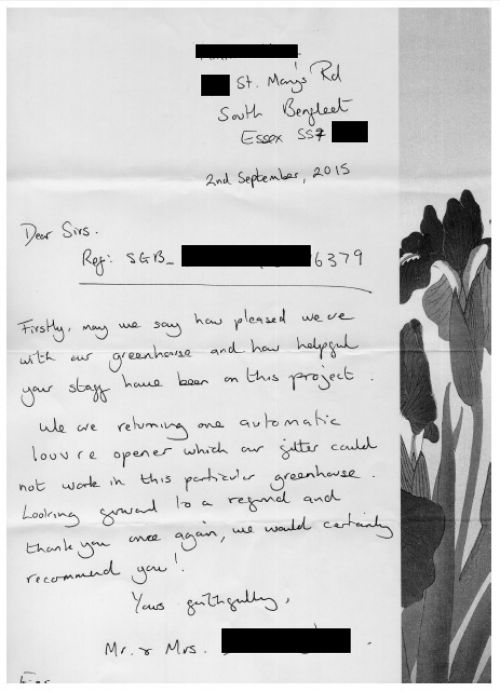 St. Mary's Rd
South Benfleet
Essex SS7
2nd September, 2015
Dear Sirs.
Ref: SGB_ 6379
Firstly, may we say how pleased we are
with our greenhouse and how helpful
your staff have been on this project.
We are returning one automatic
louvre opener which our fitter could
not work in this particular greenhouse.
Looking forward to a refund and
thank you once again, we would certainly
recommend you!
Yours faithfully,
Mr. & Mrs.